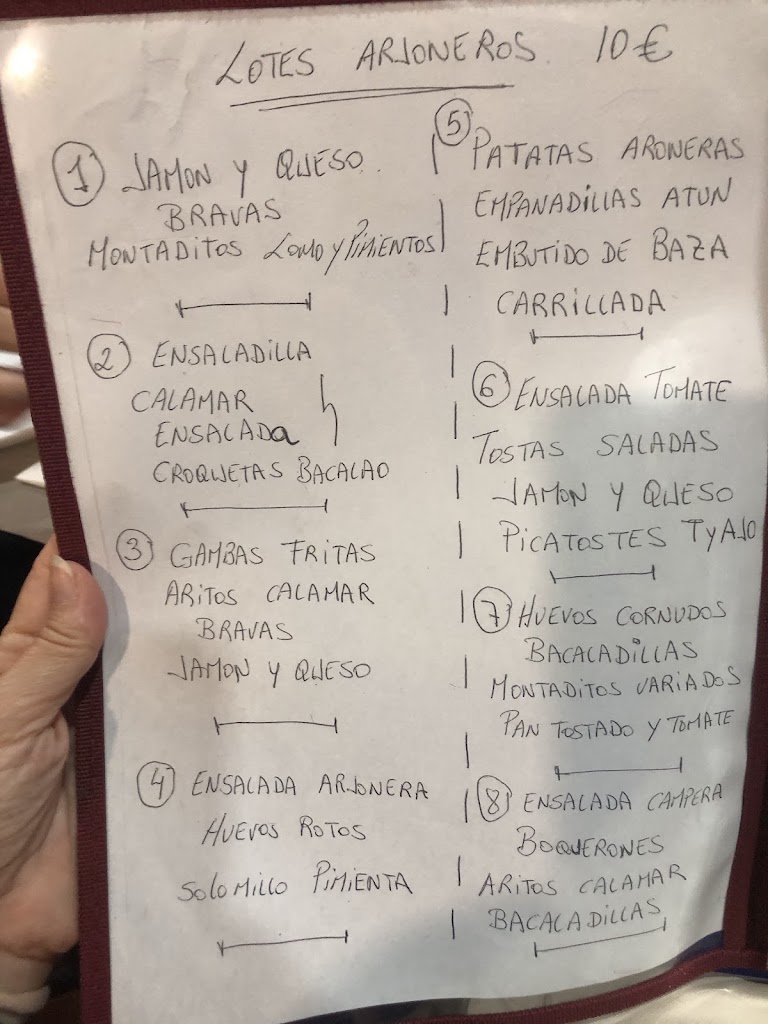 LOTES ARJONEROS. 10 €
① JAMON Y QUESO.
BRAVAS
MONTADITOS LOMO Y PIMIENTOS
② ENSALADILLA
CALAMAR
ENSALADA
CROQUETAS BACALAO
③ GAMBAS FRITAS
ARITOS CALAMAR
BRAVAS
JAMON Y QUESO
④ ENSALADA ARJONERA
HUEVOS ROTOS
SOLOMILLO PIMIENTA
⑤ PATATAS ARONERAS
EMPANADILLAS ATUN
EMBUTIDO DE BAZA
CARRILLADA
⑥ ENSALADA TOMATE
TOSTAS SALADAS
JAMON Y QUESO
PICATOSTES TY AJO
⑦ HUEVOS CORNUDOS
BACALADILLAS
MONTADITOS VARIADOS
PAN TOSTADO Y TOMATE
⑧ ENSALADA CAMPERA
BOQUERONES
ARITOS CALAMAR
BACALADILLAS